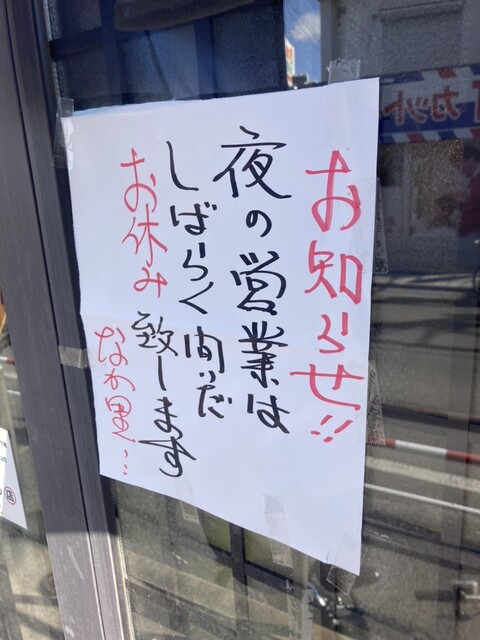 お知らせ!!
夜の営業は
しばらく間いだ
お休み致します
なか里...
カット
店